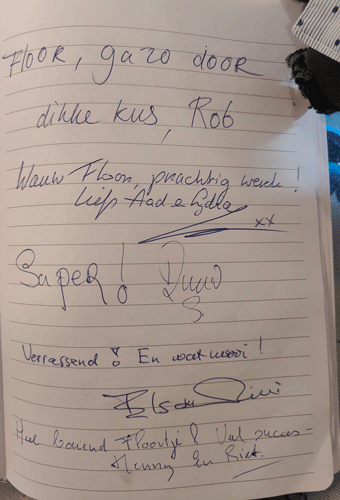 FLOOR, ga zo door
dikke kus, Rob
Wauw Floor, prachtig werk!
liefs Aad e Lydia
xx
Super! Ruud
S
Verrassend! En wat mooi!
Heel boeiend Floortje! Veel succes-
Henny en Riet.